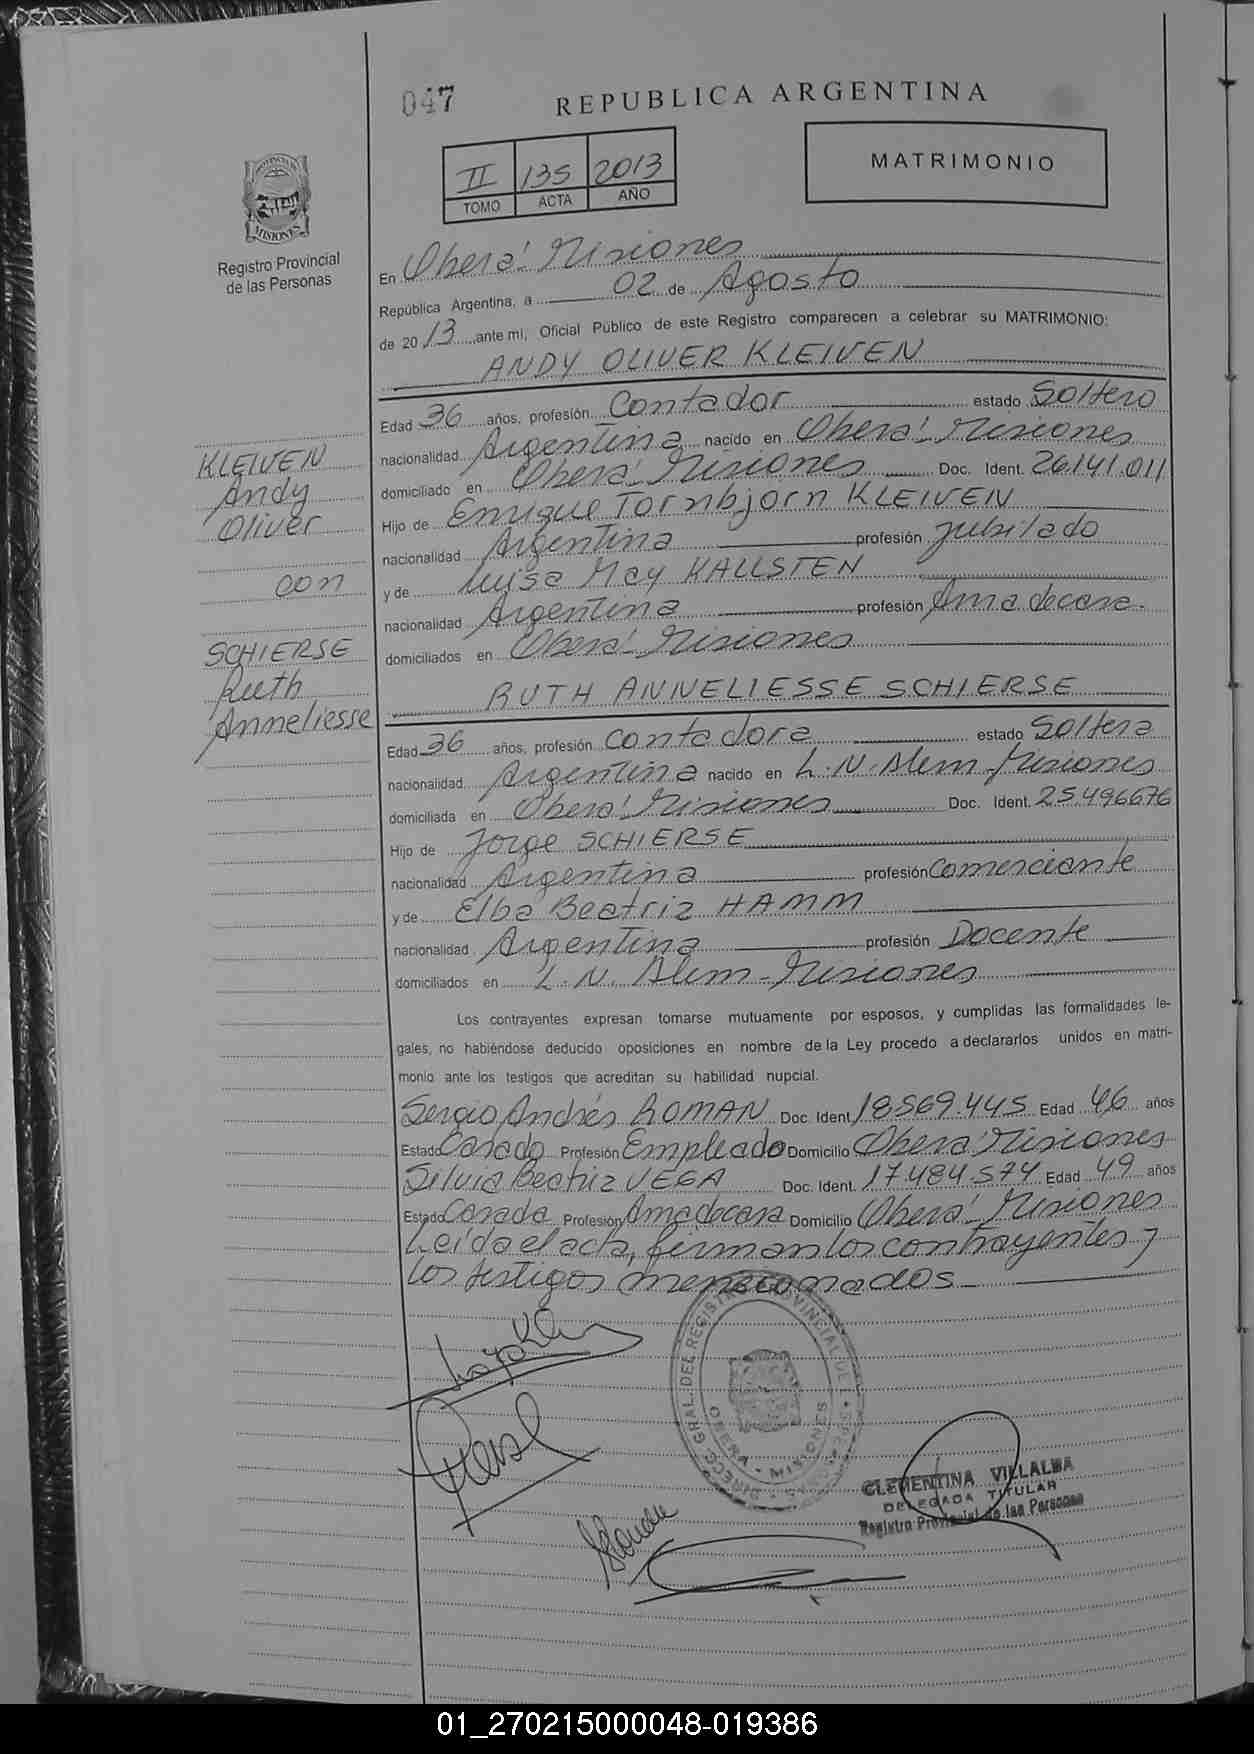 047
REPUBLICA ARGENTINA
MATRIMONIO
II 135 2013
TOMO ACTA AÑO
PROVINCIA DE
MISIONES
Registro Provincial
de las Personas
En Oberá - Misiones
República Argentina, a 02 de Agosto
de 2013 ante mi, Oficial Público de este Registro comparecen a celebrar su MATRIMONIO:
ANDY OLIVER KLEIVEN
Edad 36 años, profesión Contador estado Soltero
nacionalidad Argentina nacido en Oberá - Misiones
domiciliado en Oberá - Misiones Doc. Ident. 26.141.011
Hijo de Enrique Tornbjorn KLEIVEN
nacionalidad Argentina profesión jubilado
y de Luisa May KALLSTEN
nacionalidad Argentina profesión Ama de casa.
domiciliados en Oberá - Misiones
KLEIVEN
Andy
Oliver
con
SCHIERSE
Ruth
Anneliesse
RUTH ANNELIESSE SCHIERSE
Edad 36 años, profesión Contadora estado Soltera
nacionalidad Argentina nacido en L.N. Alem - Misiones
domiciliada en Oberá - Misiones Doc. Ident. 25.496676
Hijo de Jorge SCHIERSE
nacionalidad Argentina profesión Comerciante
y de Elba Beatriz HAMM
nacionalidad Argentina profesión Docente
domiciliados en L.N. Alem - Misiones
Los contrayentes expresan tomarse mutuamente por esposos, y cumplidas las formalidades le-
gales, no habiéndose deducido oposiciones en nombre de la Ley procedo a declararlos unidos en matri-
monio ante los testigos que acreditan su habilidad nupcial.
Sergio Andrés ROMAN Doc. Ident. 18569.445 Edad 46 años
Estado Casado Profesión Empleado Domicilio Oberá - Misiones
Silvia Beatriz VEGA Doc. Ident. 17.484.574 Edad 49 años
Estado Casada Profesión Ama de casa Domicilio Oberá - Misiones
Leída el acta, firman los contrayentes y
los testigos mencionados
DIRECC. GRAL. DEL REGISTRO PROVINCIAL DE LAS PERSONAS
OBERA - MISIONES
CLEMENTINA VILLALBA
DELEGADA TITULAR
Registro Provincial de las Personas
01_270215000048-019386